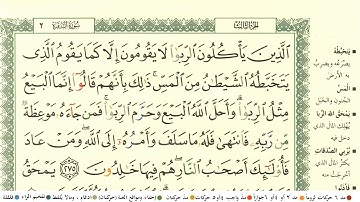 الجزء الثالث
سُورَةُ البَقَرَةِ ٢
ٱلَّذِينَ يَأْكُلُونَ ٱلرِّبَوٰاْ لَا يَقُومُونَ إِلَّا كَمَا يَقُومُ ٱلَّذِى
يَتَخَبَّطُهُ ٱلشَّيْطَٰنُ مِنَ ٱلْمَسِّ ۚ ذَٰلِكَ بِأَنَّهُمْ قَالُوٓاْ إِنَّمَا ٱلْبَيْعُ
مِثْلُ ٱلرِّبَوٰاْ ۗ وَأَحَلَّ ٱللَّهُ ٱلْبَيْعَ وَحَرَّمَ ٱلرِّبَوٰاْ ۚ فَمَن جَآءَهُۥ مَوْعِظَةٌ
مِّن رَّبِّهِۦ فَٱنتَهَىٰ فَلَهُۥ مَا سَلَفَ وَأَمْرُهُۥٓ إِلَى ٱللَّهِ ۖ وَمَنْ عَادَ
فَأُوْلَٰٓئِكَ أَصْحَٰبُ ٱلنَّارِ ۖ هُمْ فِيهَا خَٰلِدُونَ ٢٧٥ يَمْحَقُ
يتخبطه
يصرعه ويضرب
به الأرض
المس
الجنون والخبل
يمحق الله الربا
يهلك المال الذي
يربي الصدقات